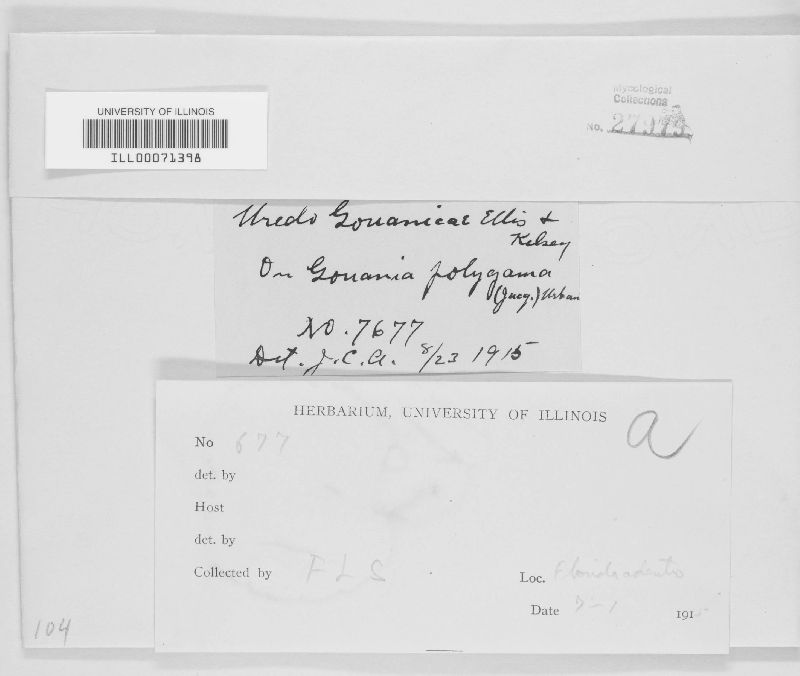 UNIVERSITY OF ILLINOIS
ILL00071398
Mycological
Collections
No. 27973
Uredo Gouanicae Ellis &
Kelsey
On Gouania polygama
(Jacq.) Urban
No. 7677
Det. J.C.A. 8/23 1915
HERBARIUM, UNIVERSITY OF ILLINOIS
a
No 677
det. by
Host
det. by
Collected by F L S
Loc.
Date 7-1 191
104